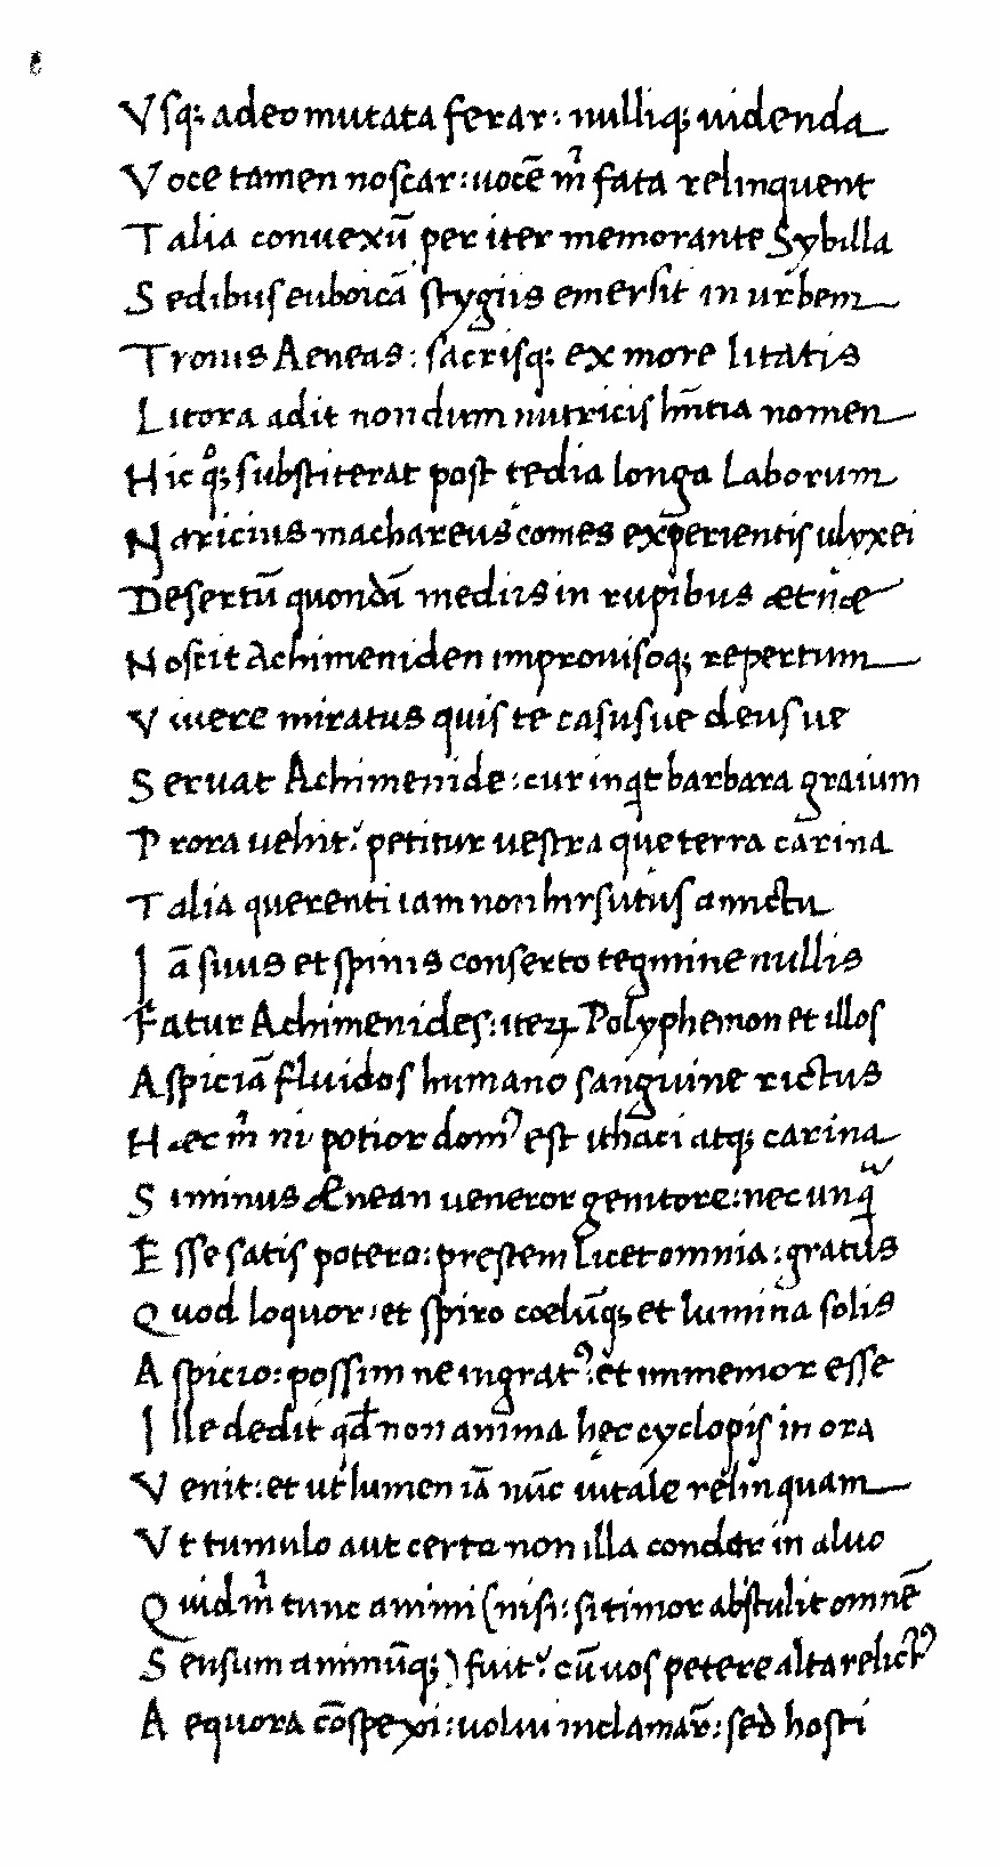 Vsq; adeo mutata ferar: nulliq; uidenda
Voce tamen noscar: uocē m̉ fata relinquent
Talia conuexū per iter memorante Sybilla
Sedibus euboicā stygiis emersit in urbem
Troius Aeneas: sacrisq; ex more litatis
Litora adit nondum nutricis hn̄tia nomen
Hic qͦ; substiterat post tedia longa Laborum
Naricius machareus comes experientis ulyxei
Desertū quondā mediis in rupibus ætnæ
Noscit Achimeniden improuisoq; repertum
Viuere miratus quis te casusue deusue
Seruat Achimenide: cur inqt barbara graium
Prora uehit? petitur uestra que terra carina
Talia querenti iam non hirsutus amictu
Iā suus et spinis conserto tegmine nullis
Fatur Achimenides: iteꝝ Polyphemon et illos
Aspiciā fluidos humano sanguine rictus
Hæc m̉ ni potior domꝰ est ithaci atq; carina
Si minus Ænean ueneror genitore: nec unq̃
Esse satis potero: prestem Licet omnia: gratus
Quod loquor: et spiro coelūq; et lumina solis
Aspicio: possim ne ingratꝰ: et immemor esse
Ille dedit qd̄ non anima hęc cyclopis in ora
Venit: et ut lumen iā nūc uitale relinquam
Vt tumulo aut certe non illa condar in aluo
Quid m̉ tunc animi (nisi: si timor abstulit omnē
Sensum animūq;) fuit? cū uos petere alta relictꝰ
Aequora cōspexi: uolui inclamar̄: sed hosti